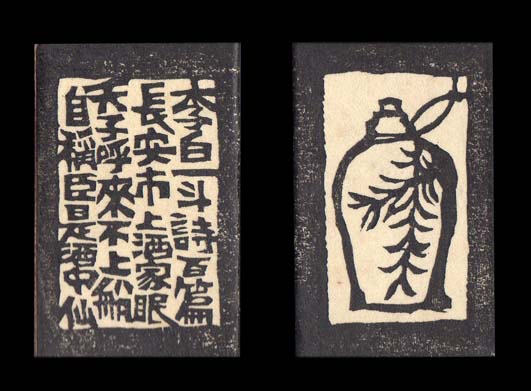 李白一斗詩百篇
長安市上酒家眠
天子呼來不上船
自稱臣是酒中仙